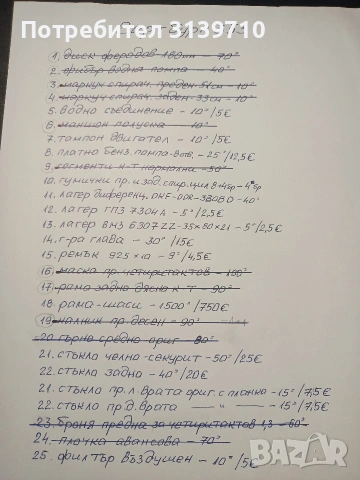 Потребител 8139710
1. диск феродов 180мм - 70°
2. фибър водна помпа - 40°
3. маркуч спирач. преден - 51см - 10°
4. маркуч спирач. заден - 33см - 10°
5. водно съединение - 10°/5€
6. маншон полуска - 10°
7. тампон двигател - 10°/5€
8. платно бенз. помпа - 25°/12,5€
9. сегменти к-т нормални - 50°
10. гумички пр. и зад. спир. цил.
11. лагер диференц. - 40°
12. лагер ГПЗ 7304А - 5°/2,5€
13. лагер 6307 ZZ - 35x80x21 - 5°/2,5€
14. г-ра глава - 30°/15€
15. ремък 925x10 - 9°/4,5€
16. маска пр. четиритактов - 100°
17. рама задно дясно к-т - 90°
18. рама - шаси - 1500°/750€
19. калник пр. десен - 90°
20. гърне средно ориг - 80°
21. стъкло челно - секурит - 50°/25€
22. стъкло задно - 40°/20€
21. стъкло пр. л. врата ориг. с планка - 15°/7,5€
22. стъкло пр. д. врата —"— —"— - 15°/7,5€
23. броня предна за четиритактов 1,3 - 60°
24. плочка авансова - 70°
25. филтър въздушен - 10°/5€
bazar